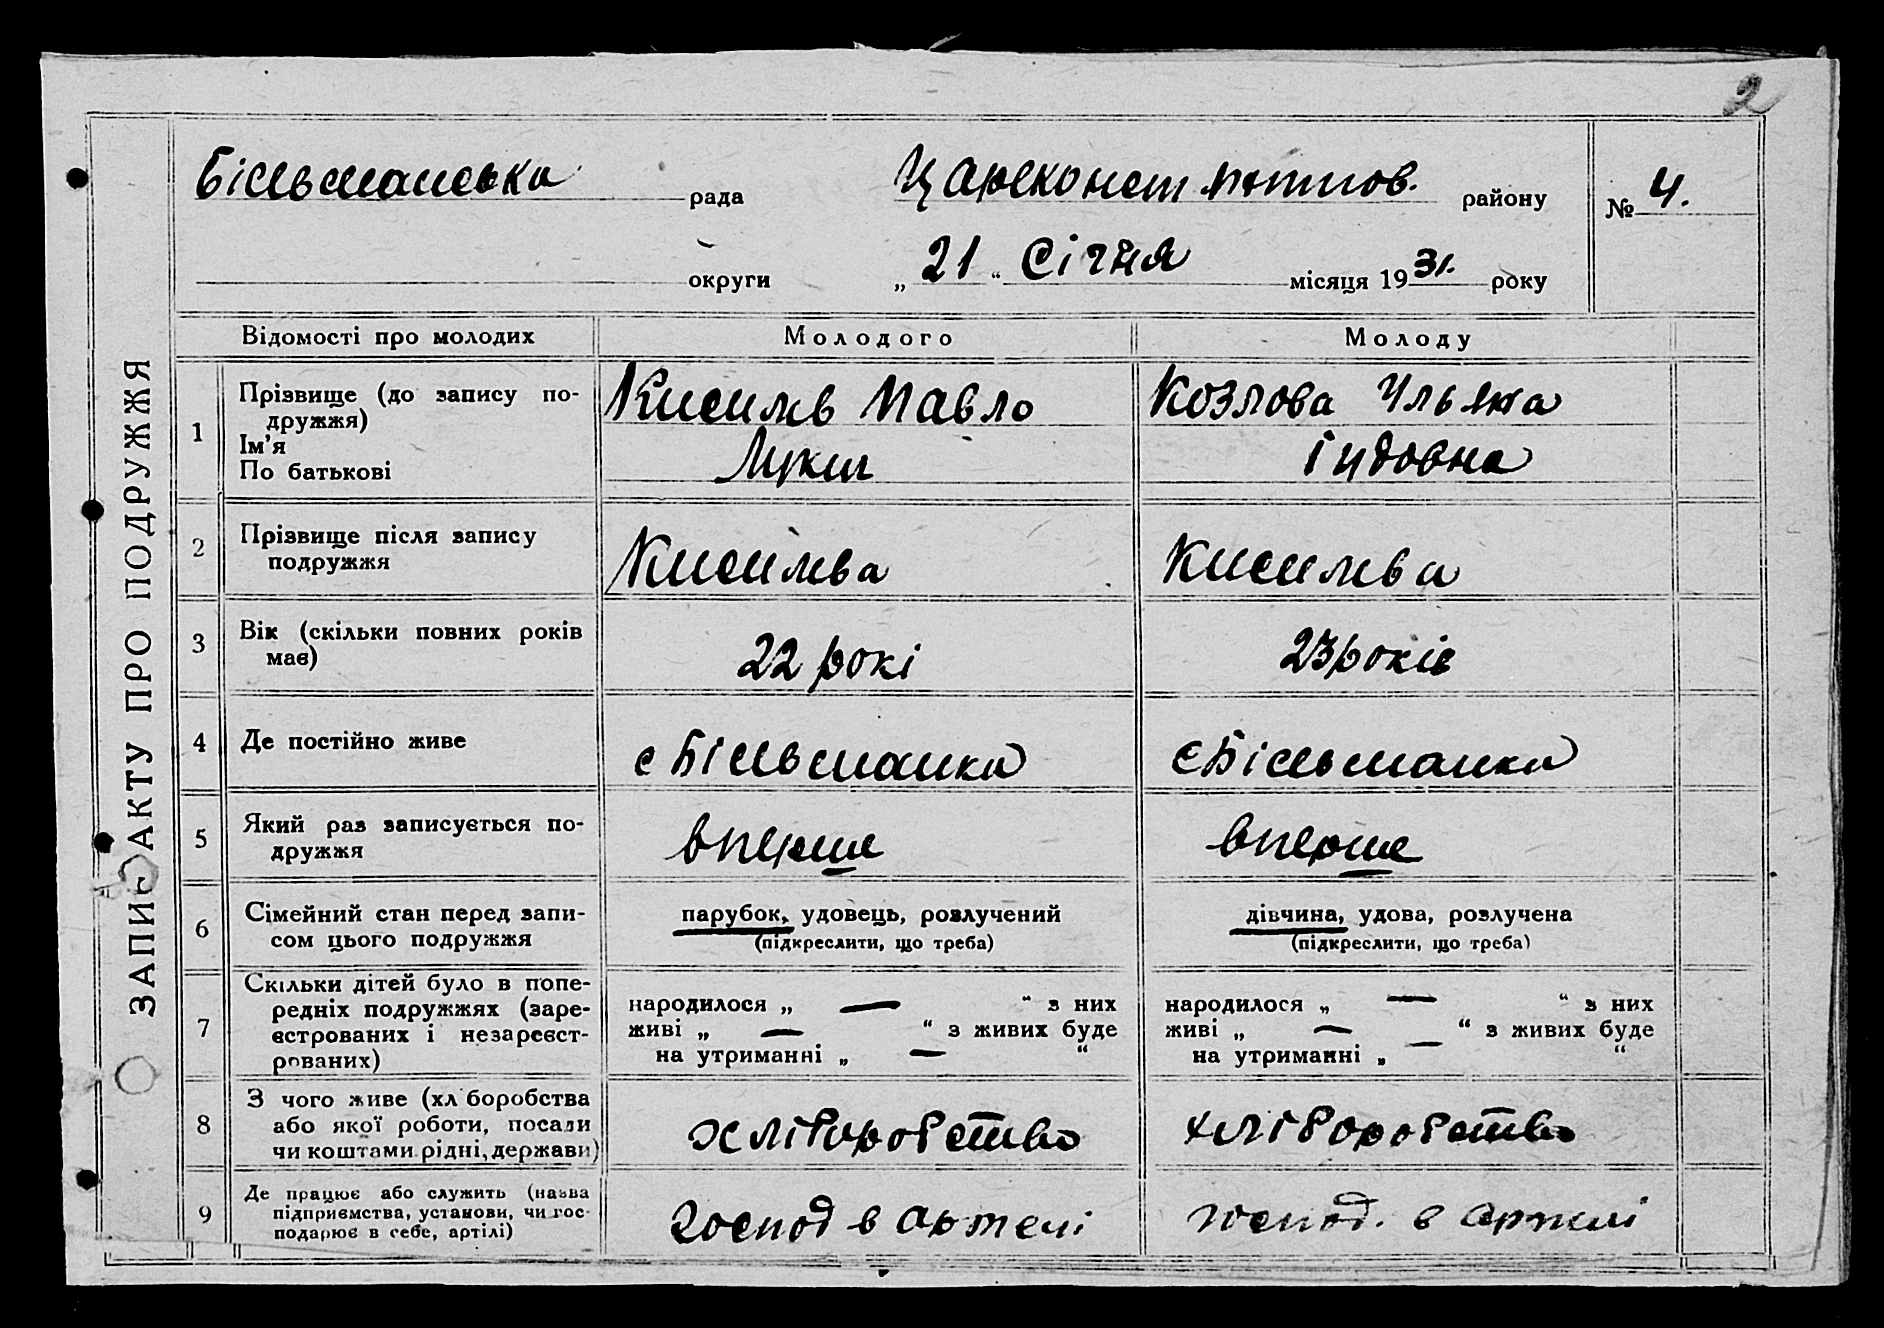 2
ЗАПИС АКТУ ПРО ПОДРУЖЖЯ
Більманська рада
Царекон­стантинов. району
№ 4.
округи
„21“ Січня місяця 1931. року
Відомості про молодих
Молодого
Молоду
1
Прізвище (до запису по-
дружжя)
Ім'я
По батькові
Кисилів Павло
Лукич
Козлова Ульяна
Іудовна
2
Прізвище після запису
подружжя
Кисилева
Кисилева
3
Вік (скільки повних років
має)
22 рокі
23 років
4
Де постійно живе
с Більманка
с Більманка
5
Який раз записується по-
дружжя
вперше
вперше
6
Сімейний стан перед запи-
сом цього подружжя
парубок, удовець, розлучений
(підкреслити, що треба)
дівчина, удова, розлучена
(підкреслити, що треба)
7
Скільки дітей було в попе-
редніх подружжях (заре-
єстрованих і незареєст-
рованих)
народилося „ — “ з них
живі „ — “ з живих буде
на утриманні „ — “
народилося „ — “ з них
живі „ — “ з живих буде
на утриманні „ — “
8
З чого живе (хліборобства
або якої роботи, посади
чи коштами рідні, держави)
хліборобство
хліборобство
9
Де працює або служить (назва
підприємства, установи, чи гос-
подарює в себе, артілі)
господ в артелі
господ. в артелі